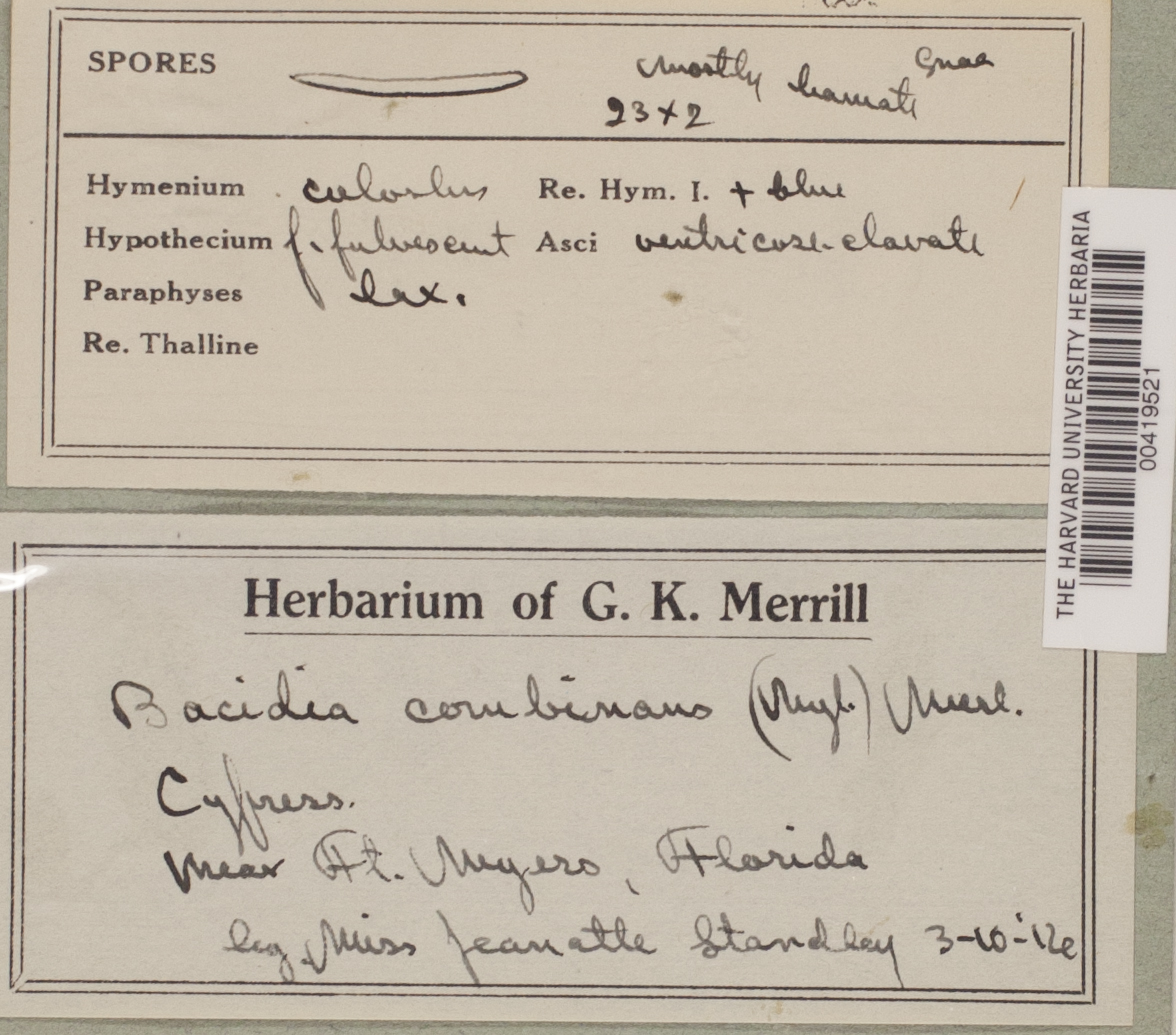 SPORES mostly hamate
23 x 2
Hymenium colorless Re. Hym. I. + blue
Hypothecium f. fulvescent Asci ventricose-clavate
Paraphyses lax.
Re. Thalline
THE HARVARD UNIVERSITY HERBARIA
00419521
Herbarium of G. K. Merrill
Bacidia combinans (Nyl.) Merl.
Cypress.
Near Ft. Myers, Florida
leg. Miss Jeanatte Standley 3-10-